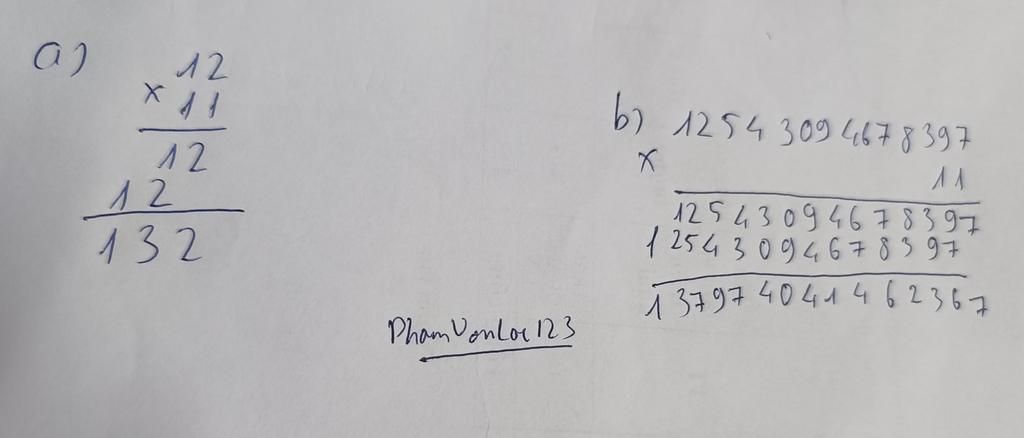 a)
12
x 11
12
12
132
b) 12543094678397
x
11
12543094678397
12543094678397
137974041462367
PhamVanLoc123